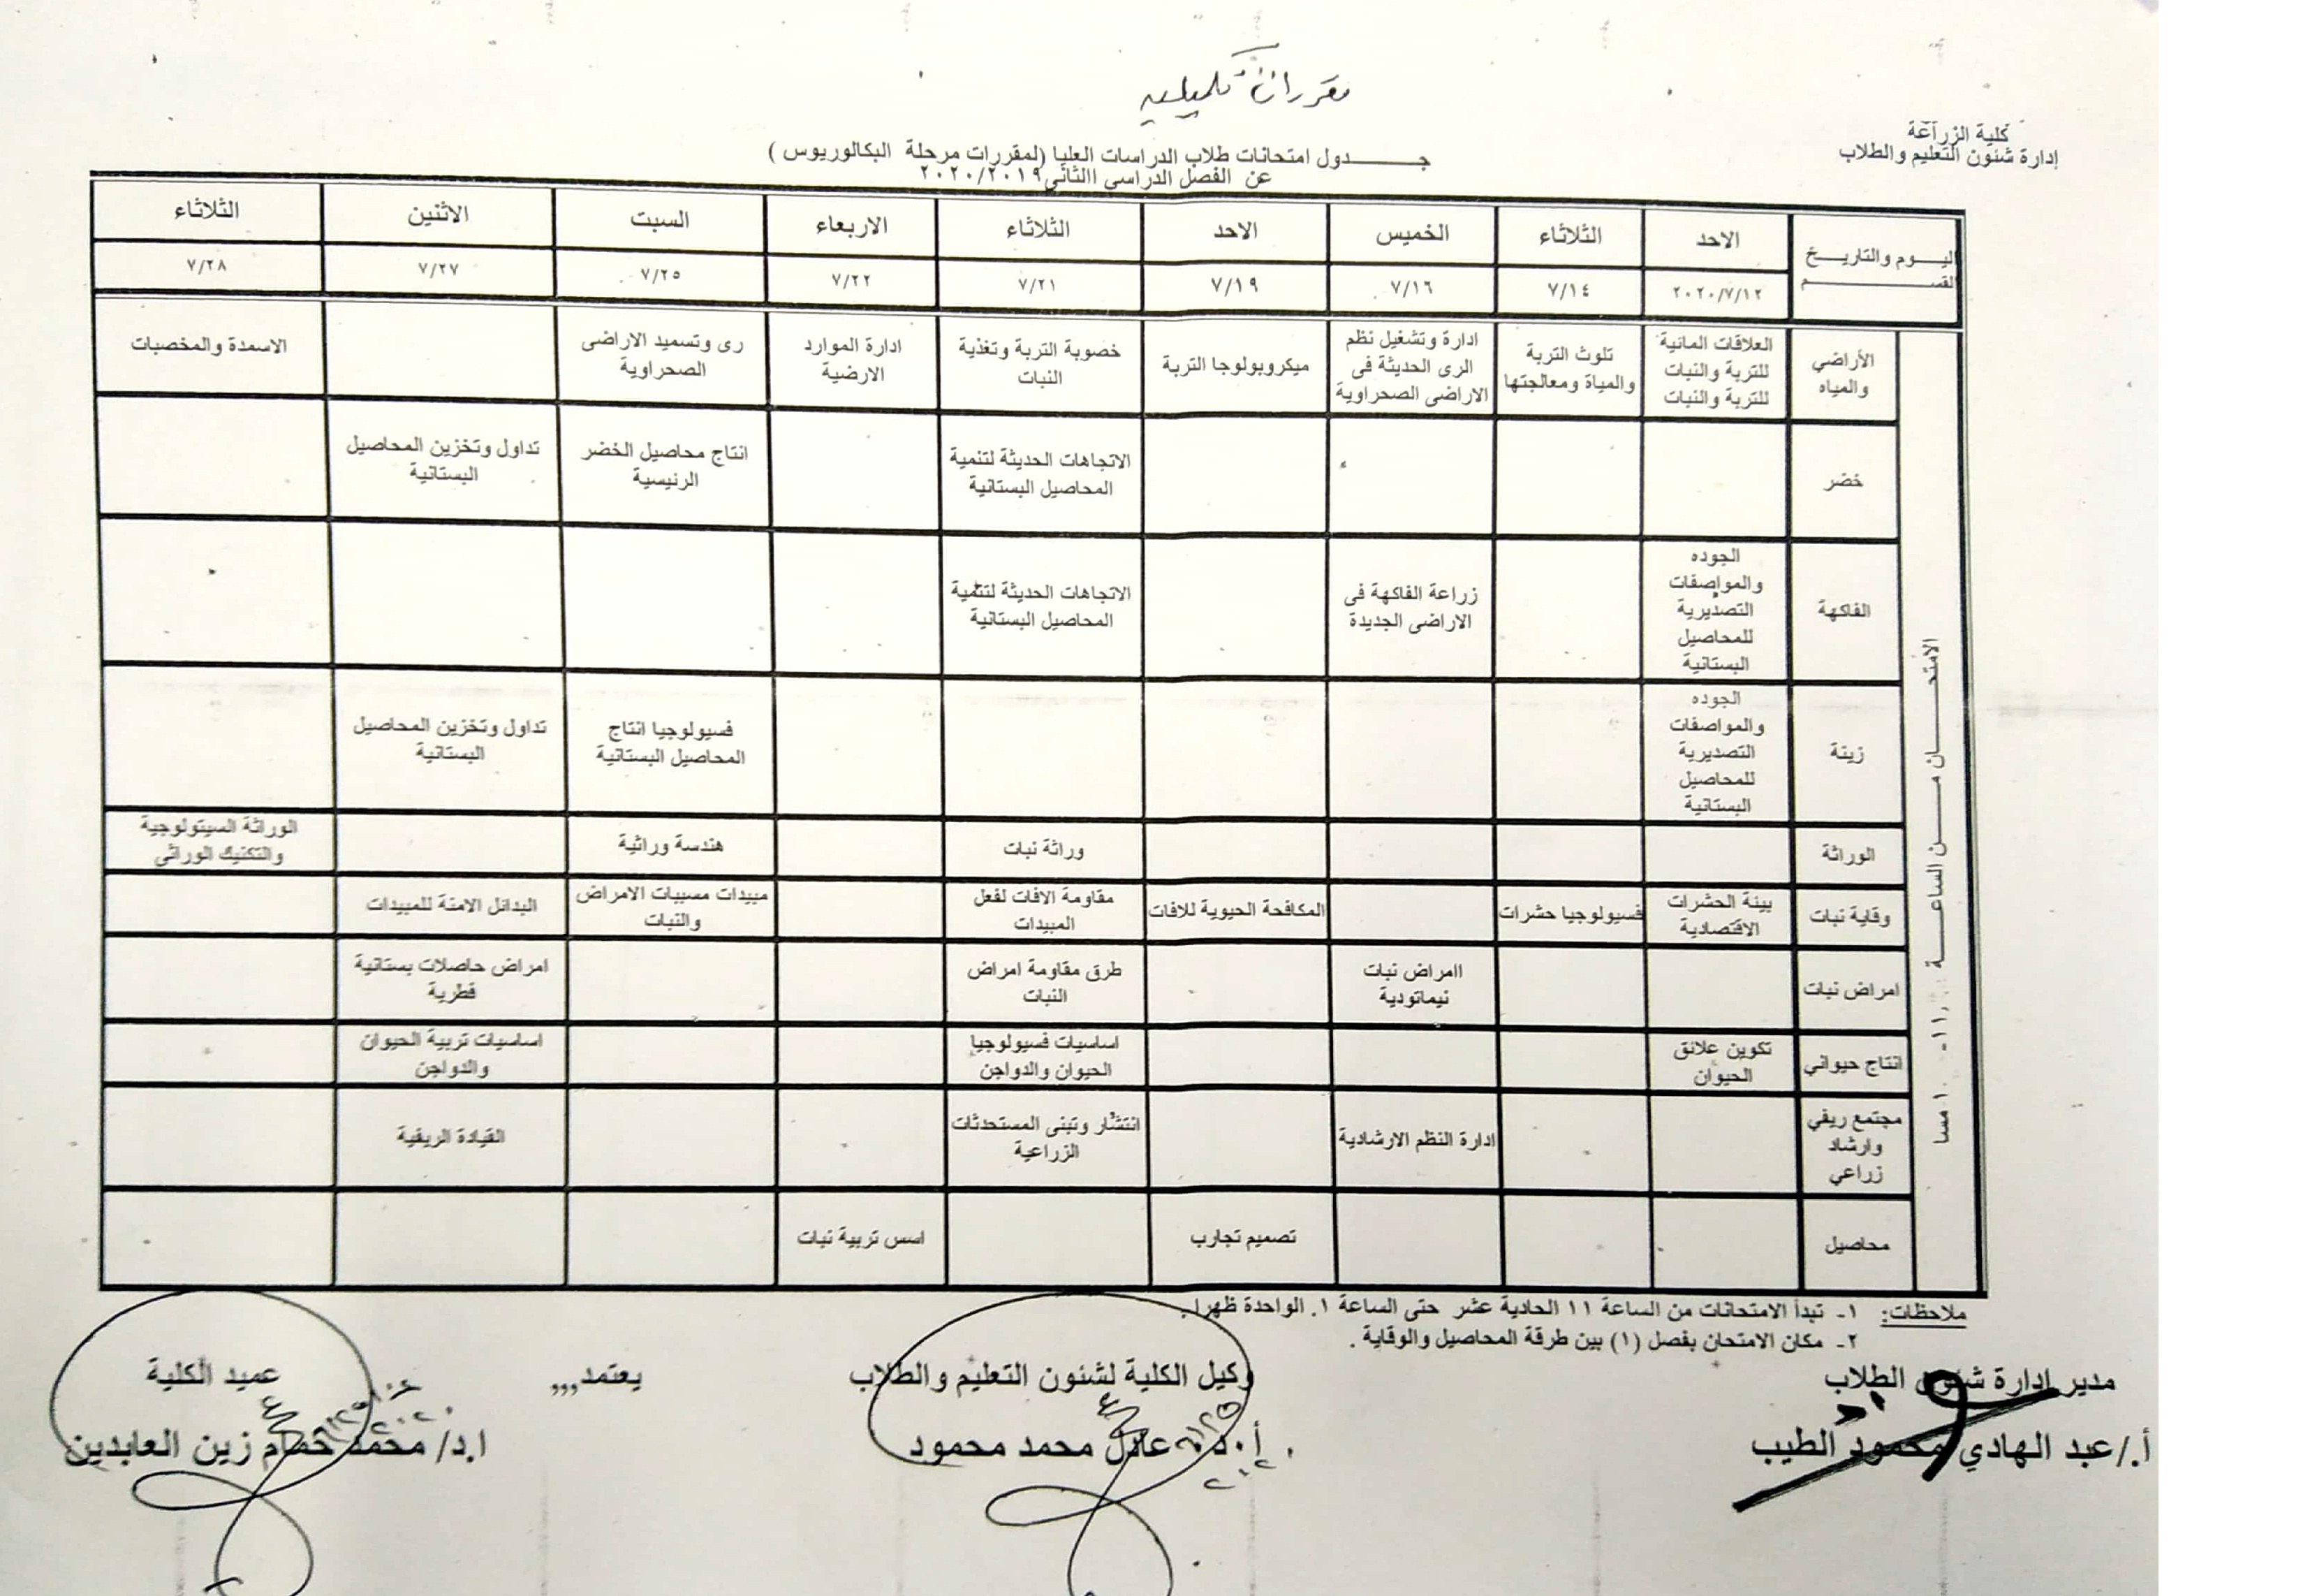 مقررات تكميلية
كلية الزراعة
إدارة شئون التعليم والطلاب
جـــــدول امتحانات طلاب الدراسات العليا (لمقررات مرحلة البكالوريوس )
عن الفصل الدراسى االثانى٢٠٢٠/٢٠١٩
اليـــوم والتاريـــخ
القســـــــم
الاحد
الثلاثاء
الخميس
الاحد
الثلاثاء
الاربعاء
السبت
الاثنين
الثلاثاء
٢٠٢٠/٧/١٢
٧/١٤
٧/١٦
٧/١٩
٧/٢١
٧/٢٢
٧/٢٥
٧/٢٧
٧/٢٨
الأراضي
والمياه
العلاقات المائية
للتربة والنبات
للتربة والنبات
تلوث التربة
والمياة ومعالجتها
ادارة وتشغيل نظم
الرى الحديثة فى
الاراضى الصحراوية
ميكروبولوجا التربة
خصوبة التربة وتغذية
النبات
ادارة الموارد
الارضية
رى وتسميد الاراضى
الصحراوية
الاسمدة والمخصبات
خضر
الاتجاهات الحديثة لتنمية
المحاصيل البستانية
انتاج محاصيل الخضر
الرئيسية
تداول وتخزين المحاصيل
البستانية
الفاكهة
الجوده
والمواصفات
التصديرية
للمحاصيل
البستانية
زراعة الفاكهة فى
الاراضى الجديدة
الاتجاهات الحديثة لتنمية
المحاصيل البستانية
زينة
الجوده
والمواصفات
التصديرية
للمحاصيل
البستانية
فسيولوجيا انتاج
المحاصيل البستانية
تداول وتخزين المحاصيل
البستانية
الوراثة
وراثة نبات
هندسة وراثية
الوراثة السيتولوجية
والتكنيك الوراثى
وقاية نبات
بيئة الحشرات
الاقتصادية
فسيولوجيا حشرات
المكافحة الحيوية للافات
مقاومة الافات لفعل
المبيدات
مبيدات مسببات الامراض
والنبات
البدائل الامنة للمبيدات
امراض نبات
اامراض نبات
نيماتودية
طرق مقاومة امراض
النبات
امراض حاصلات بستانية
فطرية
انتاج حيواني
تكوين علائق
الحيوان
اساسيات فسيولوجيا
الحيوان والدواجن
اساسيات تربية الحيوان
والدواجن
مجتمع ريفي
وارشاد
زراعي
ادارة النظم الارشادية
انتشار وتبنى المستحدثات
الزراعية
القيادة الريفية
محاصيل
تصميم تجارب
اسس تربية نبات
الامتحـــــان مـــــن الساعـــــة
ملاحظات: ١- تبدأ الامتحانات من الساعة ١١ الحادية عشر حتى الساعة ١. الواحدة ظهرا.
٢- مكان الامتحان بفصل (١) بين طرقة المحاصيل والوقاية .
مدير إدارة شئون الطلاب
وكيل الكلية لشئون التعليم والطلاب
يعتمد,,,
عميد الكلية
أ./عبد الهادي محمود الطيب
أ.د. عادل محمد محمود
ا.د/ محمد حمام زين العابدين